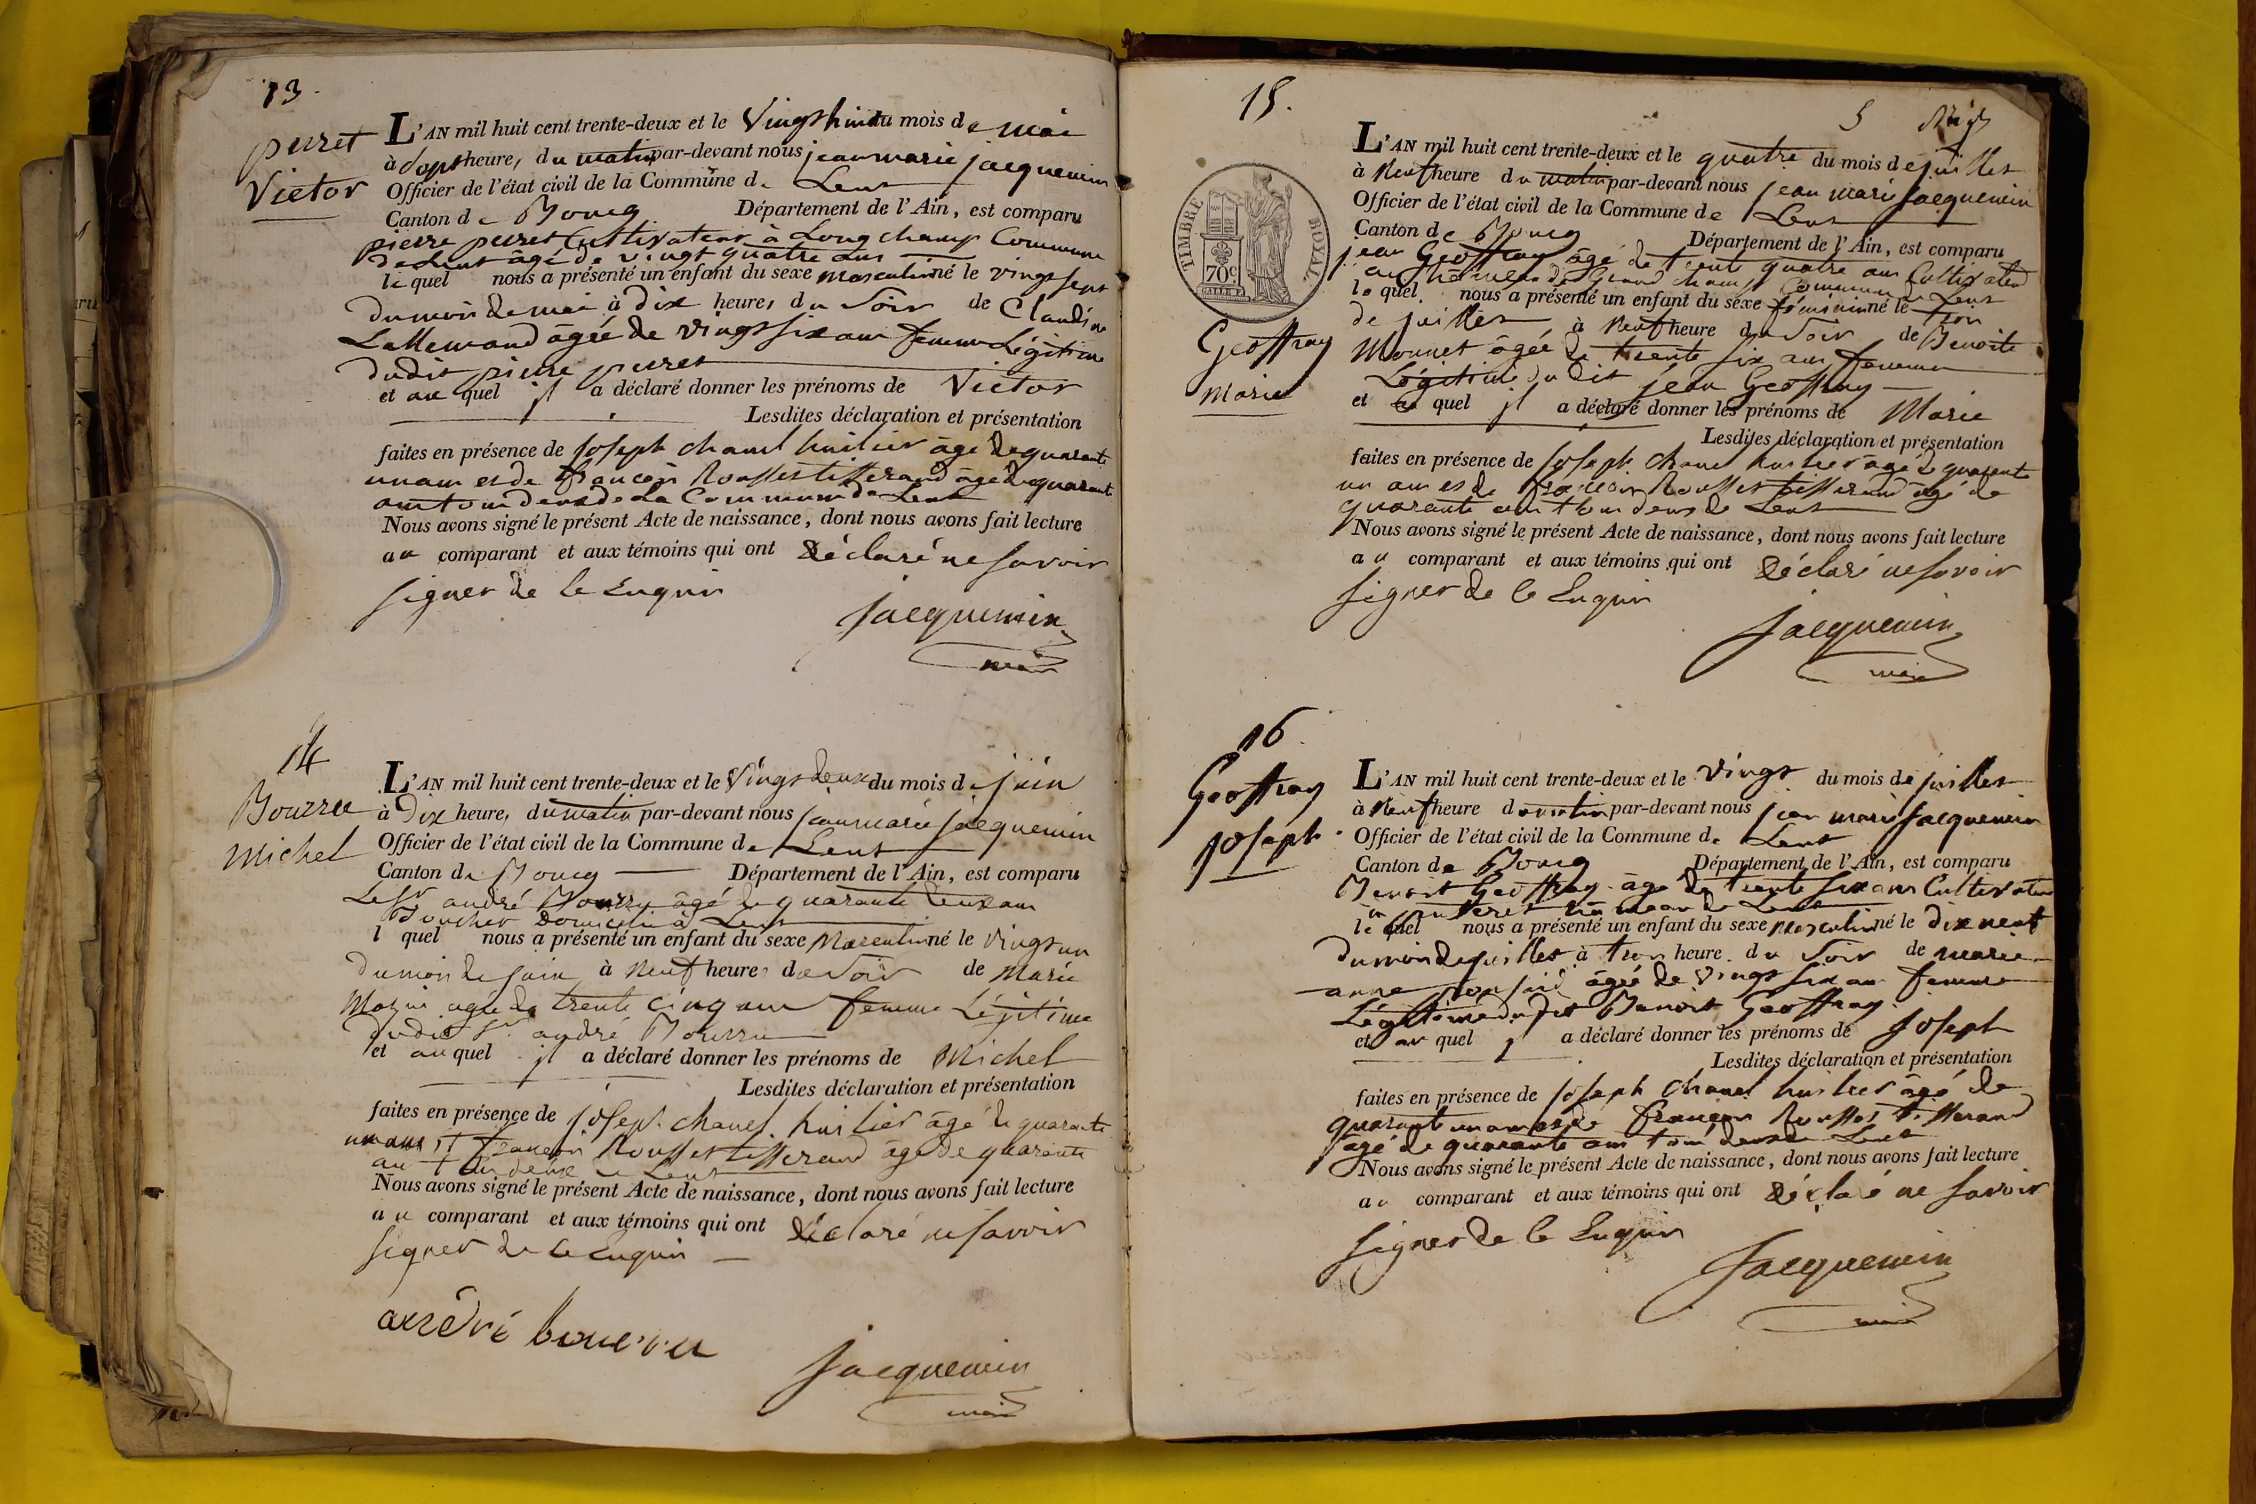 13.
perret
Victor
L'AN mil huit cent trente-deux et le vingt huit du mois de mai
à Sept heures du matin par-devant nous jean marie jacquemin
Officier de l'état civil de la Commune de Lent
Canton de Bourg Département de l'Ain, est comparu
pierre perret Cultivateur à Longchamp Commune
de Lent âgé de vingt quatre ans
lequel nous a présenté un enfant du sexe masculin né le vingt sept
du mois de mai à dix heures du Soir de Claudine
Lallemand âgée de vingt six ans femme Légitime
dudit pierre perret
et auquel il a déclaré donner les prénoms de Victor
Lesdites déclaration et présentation
faites en présence de joseph chanel huilier âgé de quarante
un ans et de françois Rousset tisserand âgé de quarante
ans tous deux de La Commune de Lent
Nous avons signé le présent Acte de naissance, dont nous avons fait lecture
au comparant et aux témoins qui ont déclaré ne savoir
signer de ce Enquis
jacquemin
maire
14
Bourru
Michel
L'AN mil huit cent trente-deux et le vingt deux du mois de juin
à Dix heures du matin par-devant nous jean marie jacquemin
Officier de l'état civil de la Commune de Lent
Canton de Bourg Département de l'Ain, est comparu
Le Sr andré Bourru âgé de quarante deux ans
Boucher Domicilié à Lent
lequel nous a présenté un enfant du sexe Masculin né le vingt un
du mois de juin à neuf heures du Soir de Marie
âgée de trente cinq ans femme Légitime
dudit Sr andré Bourru
et auquel il a déclaré donner les prénoms de Michel
Lesdites déclaration et présentation
faites en présence de joseph chanel huilier âgé de quarante
un ans et françois Rousset tisserand âgé de quarante
ans tous deux de Lent
Nous avons signé le présent Acte de naissance, dont nous avons fait lecture
au comparant et aux témoins qui ont déclaré ne savoir
signer de ce Enquis
andré bourru
jacquemin
maire
15.
5
TIMBRE ROYAL
70c
Geoffray
Marie
L'AN mil huit cent trente-deux et le quatre du mois de juillet
à Neuf heure du matin par-devant nous jean marie jacquemin
Officier de l'état civil de la Commune de Lent
Canton de Bourg Département de l'Ain, est comparu
jean Geoffray âgé de trente quatre ans Cultivateur
au hameau de Grand champ Commune de Lent
lequel nous a présenté un enfant du sexe féminin né le trois
de juillet à Neuf heure du Soir de Benoite
Monnet âgée de trente six ans femme
Légitime du dit jean Geoffray
et au quel il a déclaré donner les prénoms de Marie
Lesdites déclaration et présentation
faites en présence de joseph chanel huilier âgé de quarante
un ans et de françois Rousset tisserand âgé de
quarante ans tous deux de Lent
Nous avons signé le présent Acte de naissance, dont nous avons fait lecture
au comparant et aux témoins qui ont déclaré ne savoir
signer de ce Enquis
jacquemin
maire
16.
Geoffray
joseph
L'AN mil huit cent trente-deux et le vingt du mois de juillet
à Neuf heure du matin par-devant nous jean marie jacquemin
Officier de l'état civil de la Commune de Lent
Canton de Bourg Département de l'Ain, est comparu
Benoit Geoffray âgé de trente six ans Cultivateur
hameau de Lent
lequel nous a présenté un enfant du sexe masculin né le dix neuf
du mois de juillet à trois heure du Soir de marie
anne âgée de vingt six ans femme
Légitime du dit Benoit Geoffray
et au quel il a déclaré donner les prénoms de joseph
Lesdites déclaration et présentation
faites en présence de joseph chanel huilier âgé de
quarante un ans et de françois Rousset tisserand
âgé de quarante ans tous deux de Lent
Nous avons signé le présent Acte de naissance, dont nous avons fait lecture
au comparant et aux témoins qui ont déclaré ne savoir
signer de ce Enquis
jacquemin
maire